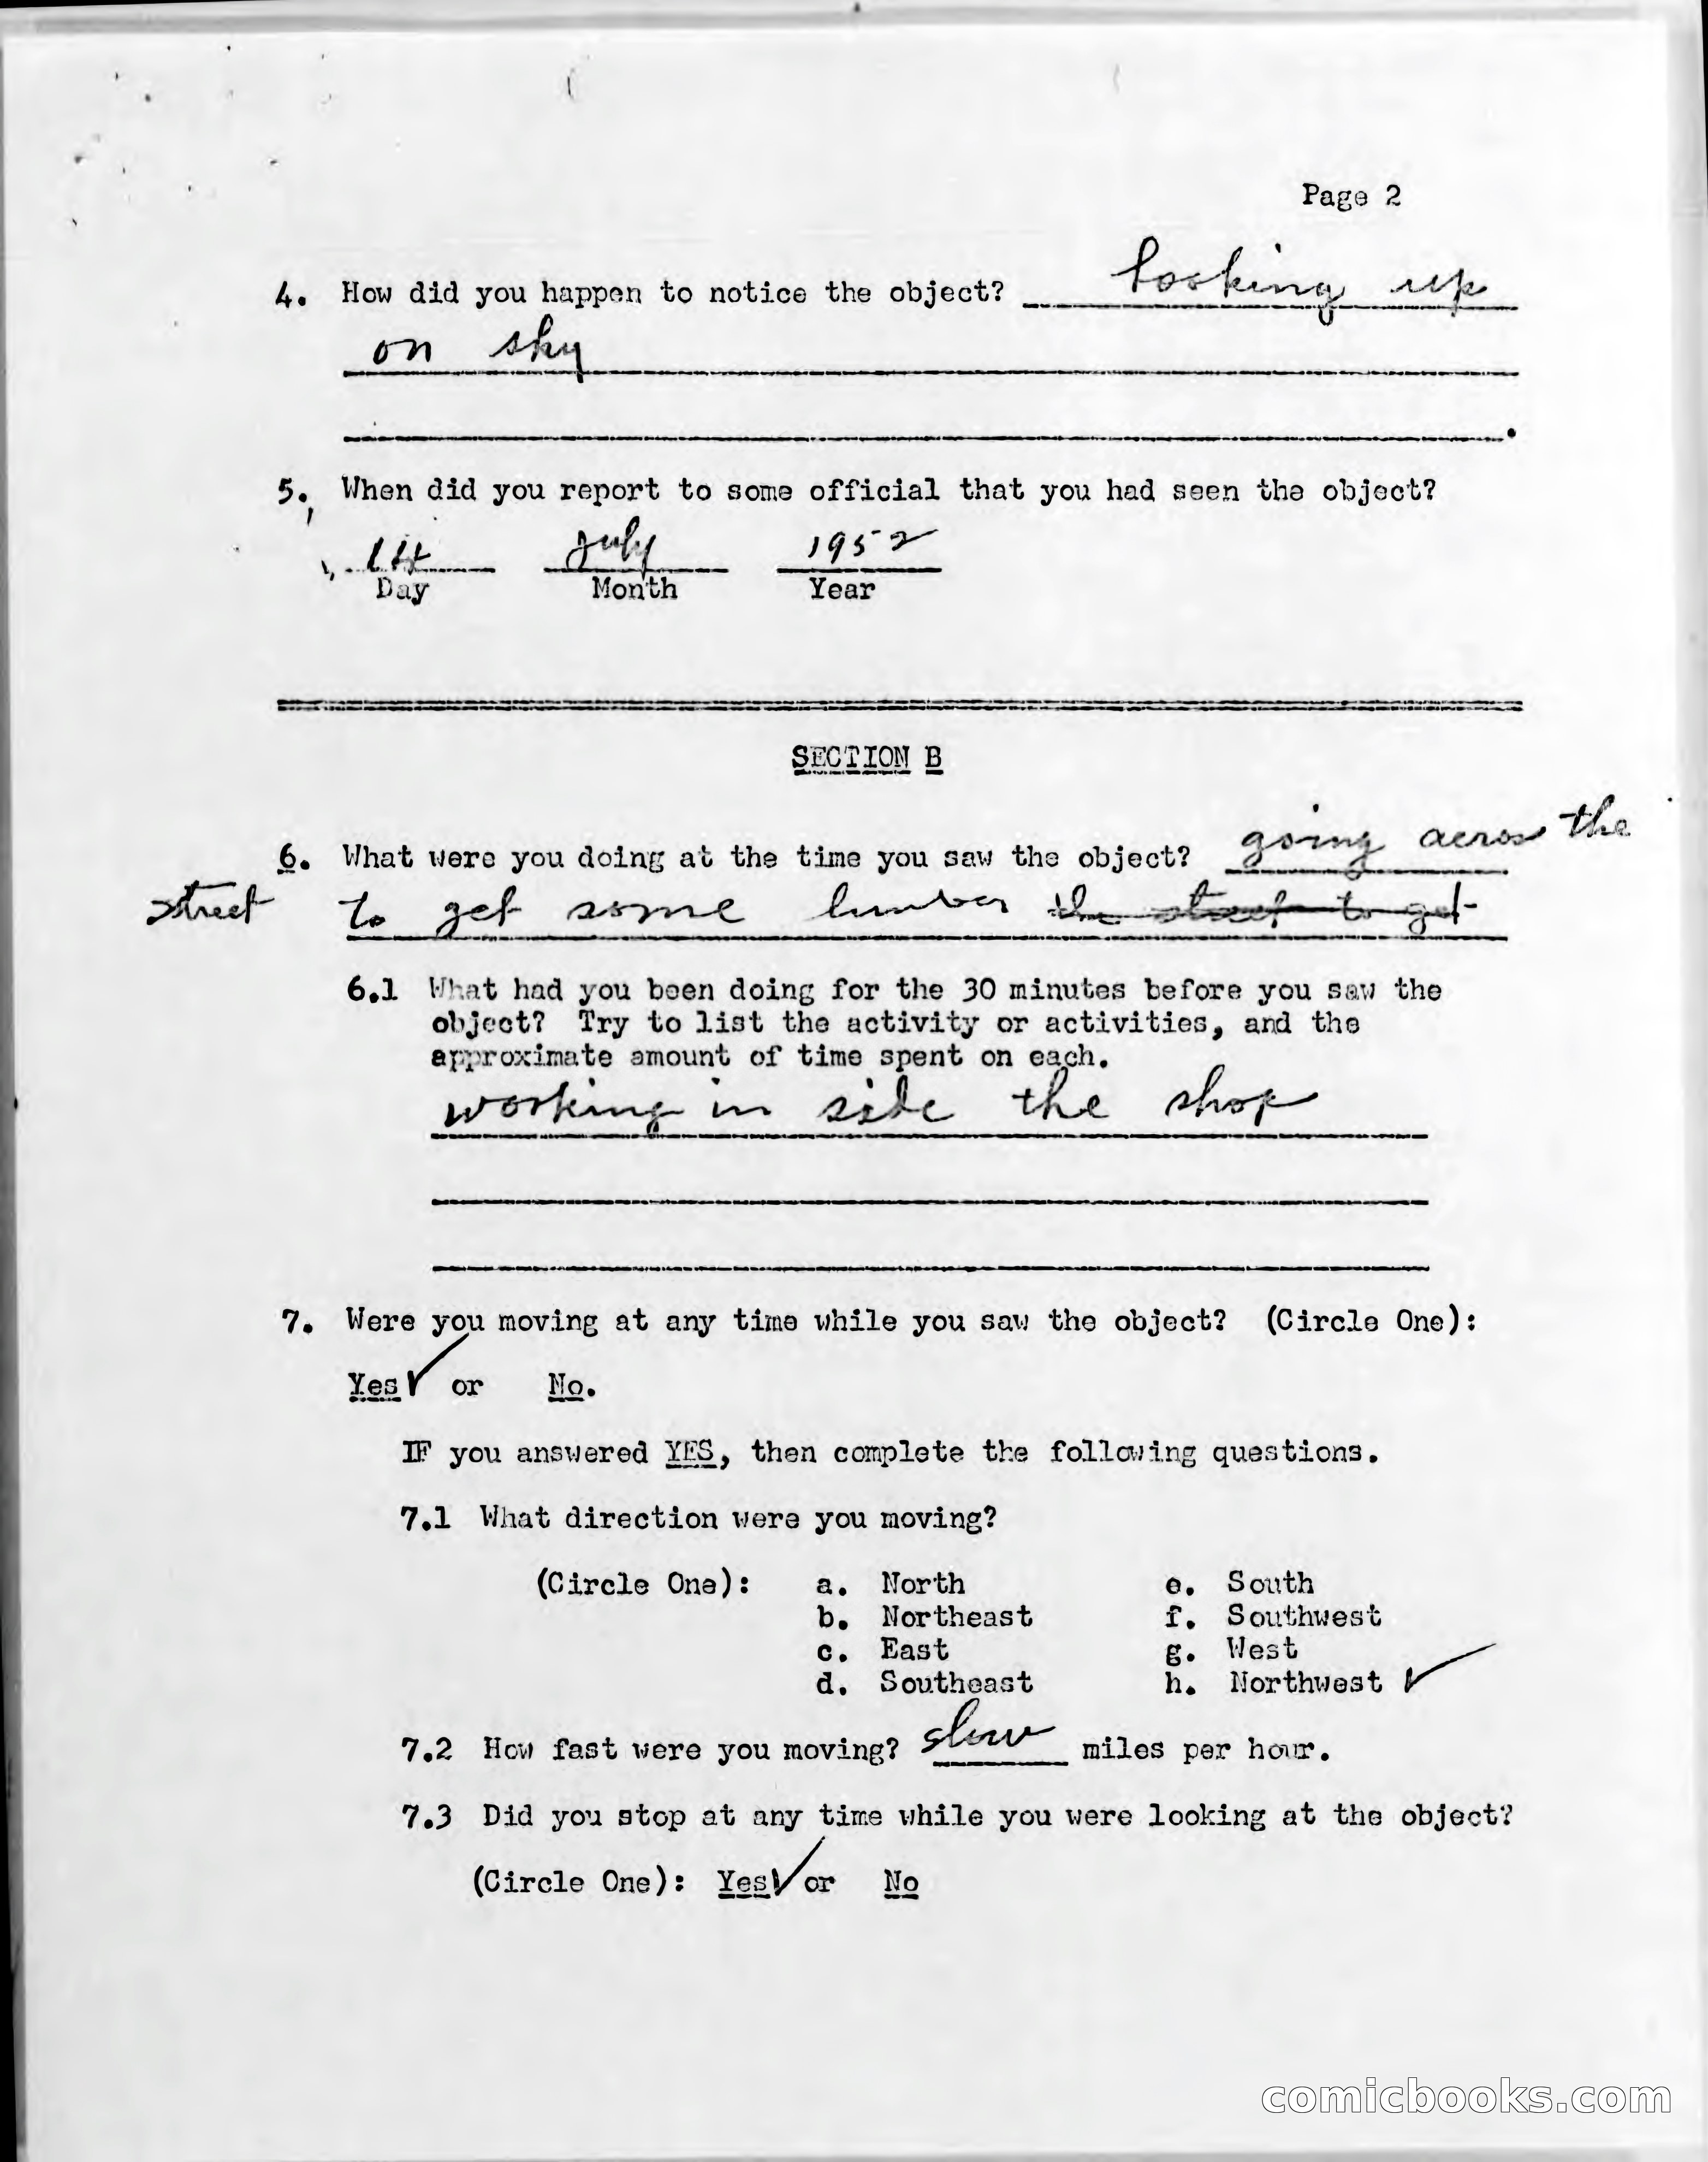 Page 2
4. How did you happen to notice the object? looking up
on sky
5. When did you report to some official that you had seen the object?
14 July 1952
Day Month Year
SECTION B
6. What were you doing at the time you saw the object? going across the
street to get some lumber the street to get
6.1 What had you been doing for the 30 minutes before you saw the
object? Try to list the activity or activities, and the
approximate amount of time spent on each.
working in side the shop
7. Were you moving at any time while you saw the object? (Circle One):
Yes ✓ or No.
IF you answered YES, then complete the following questions.
7.1 What direction were you moving?
(Circle One): a. North e. South
b. Northeast f. Southwest
c. East g. West
d. Southeast h. Northwest ✓
7.2 How fast were you moving? slow miles per hour.
7.3 Did you stop at any time while you were looking at the object?
(Circle One): Yes ✓ or No
comicbooks.com